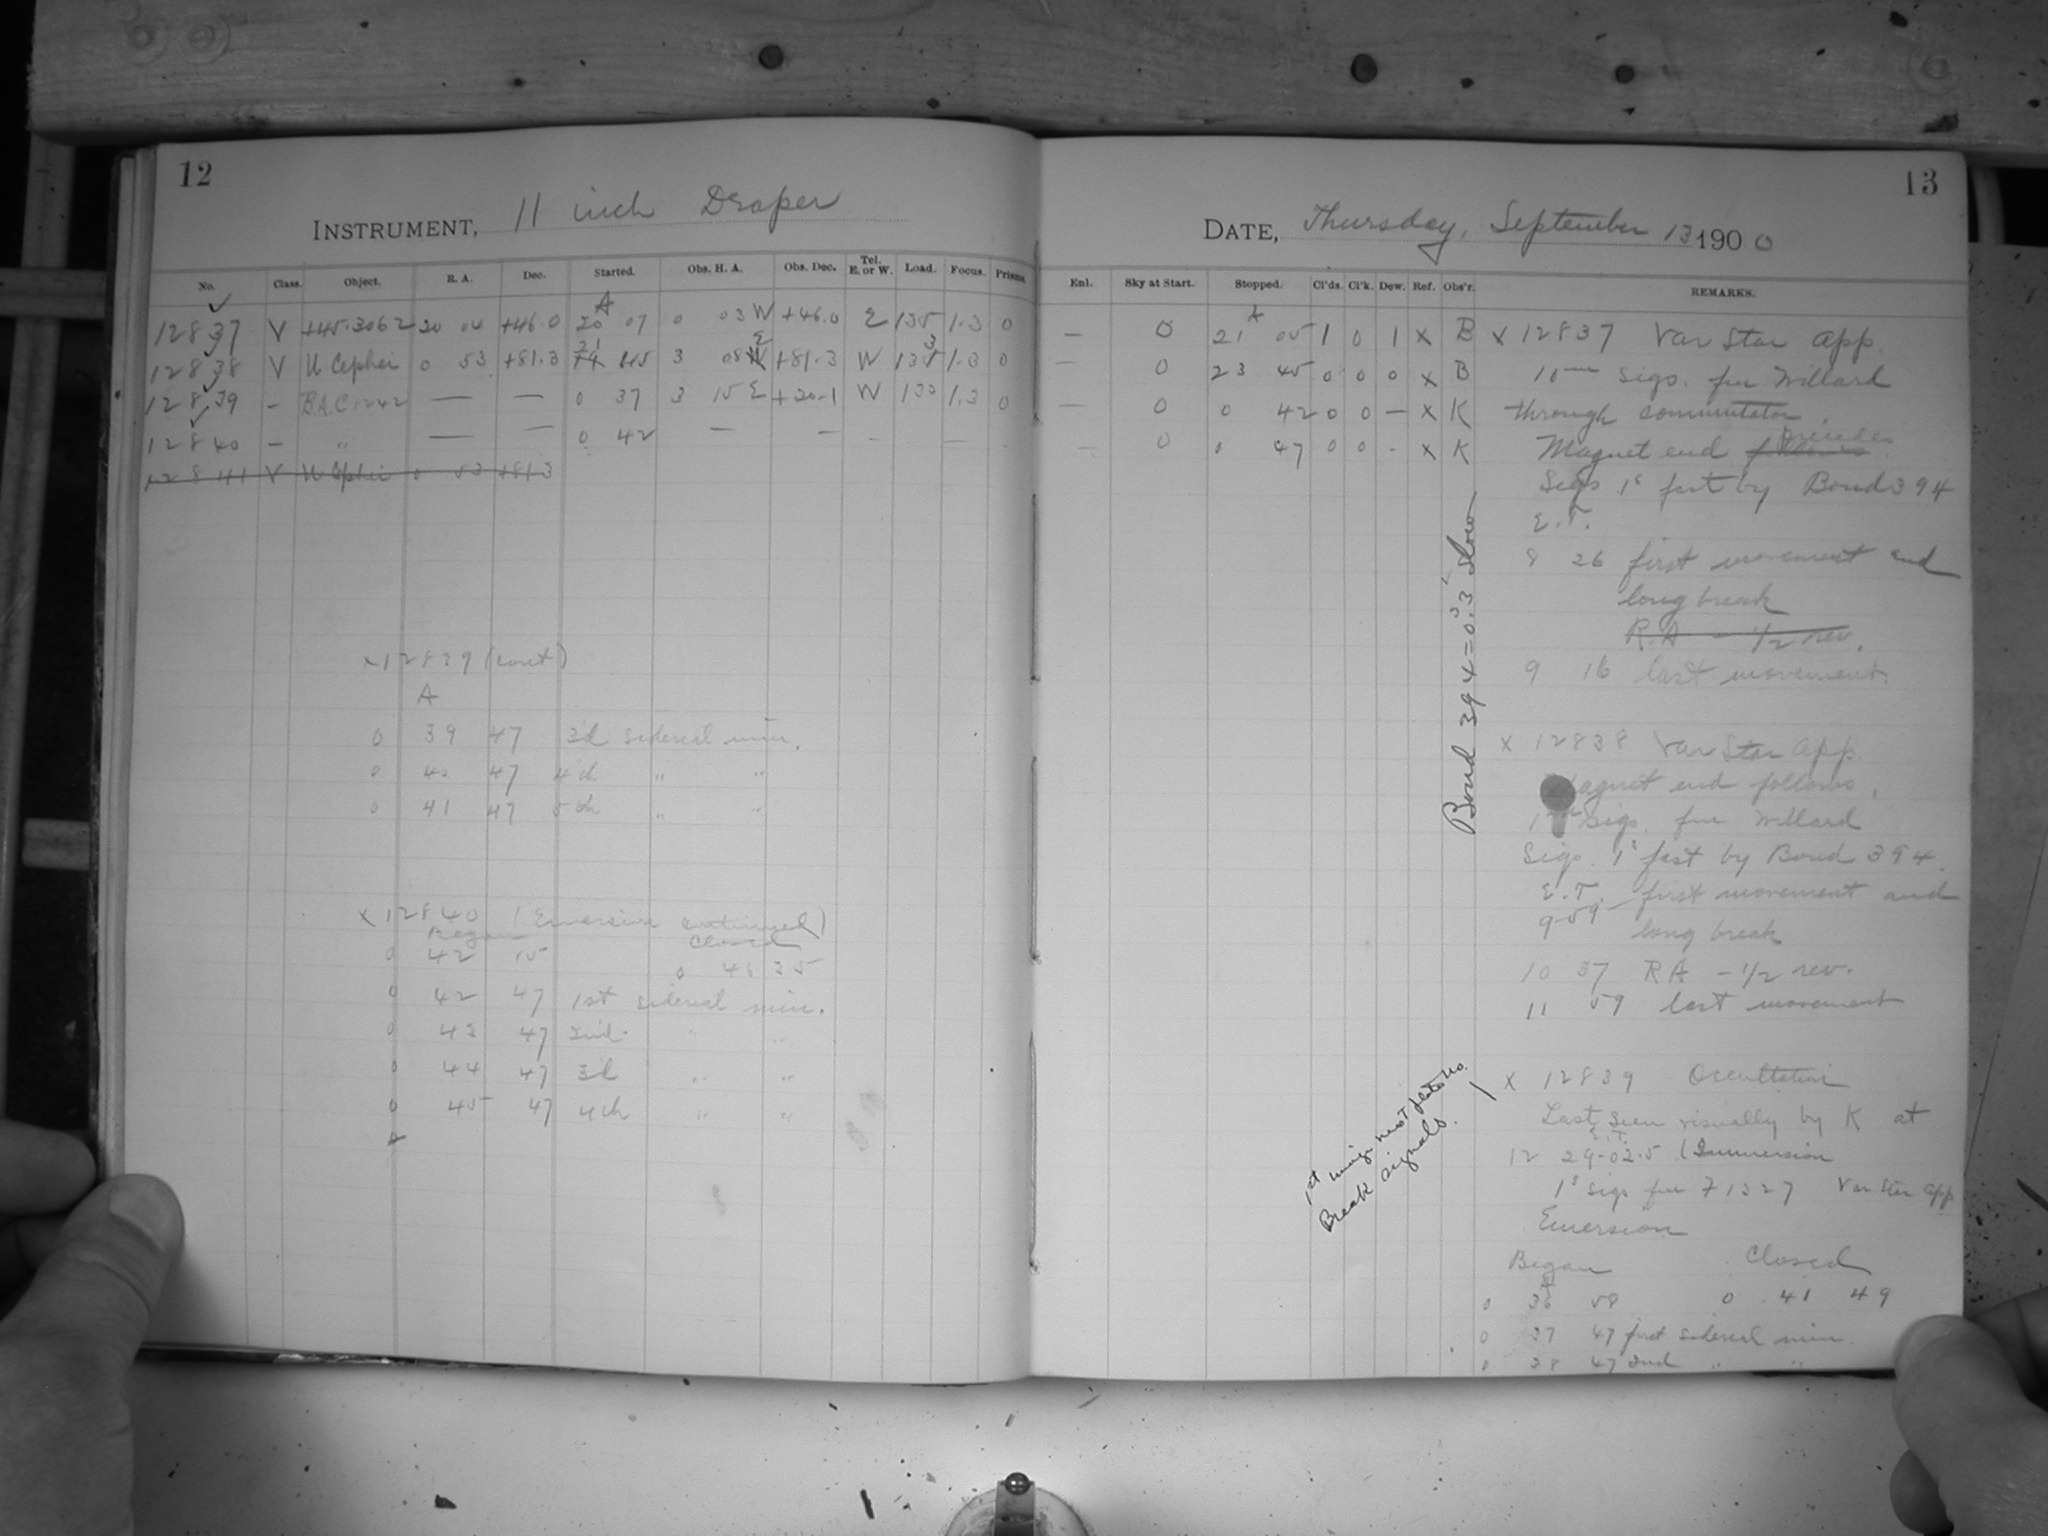 12
INSTRUMENT, 11 inch Draper
No. Class. Object. R. A. Dec. Started. Obs. H. A. Obs. Dec. Tel. E. or W. Load. Focus. Prisms
A
12837 V +45.3062 20 04 +46.0 20 07 0 03 W +46.0 E 135 1.3 0
12838 V U Cephei 0 53 +81.3 21 3 08 E +81.3 W 1.3 0
12839 – B.A.C. 1242 — — 0 37 3 15 E +20.1 W 133 1.3 0
12840 – " — — 0 42 — – - —
12841 V U Cephei 0 53 +81.3
x 12839 (cont)
A
0 39 47 3d sidereal min.
0 40 47 4th " "
0 41 47 5th " "
x 12840 (Emersion continued)
Began Closed
0 42 15
0 46 35
0 42 47 1st sidereal min.
0 43 47 2nd " "
0 44 47 3d " "
0 45 47 4th " "
A
13
DATE, Thursday, September 13 1900
Enl. Sky at Start. Stopped. Cl'ds. Cl'k. Dew. Ref. Obs'r. REMARKS.
— 0 21 05 1 0 1 x B
— 0 23 45 0 0 0 x B
— 0 0 42 0 0 – x K
— 0 0 47 0 0 - x K
x 12837 Var Star app.
sigs. fm Willard
through commutator.
precedes
Magnet end follows
Sigs 1s fast by Bond 394
E.T.
8 26 first movement and
long break
R.A – 1/2 rev.
9 16 last movement.
x 12838 Var Star app.
Magnet end follows.
sigs. fm Willard
Sigs. 1s fast by Bond 394.
E.T. first movement and
9-59 long break
10 37 RA – 1/2 rev.
11 59 last movement
x 12839 Occultation
Last seen visually by K at
E.T.
12 29-02.5 (Immersion
1s sigs fm 71327 Var Star app
Emersion
Began Closed
0 36 58 0 41 49
0 37 47 first sidereal min.
0 38 47 2nd " "
Bond 394 = 0s.3 slow
1st
Break signals.